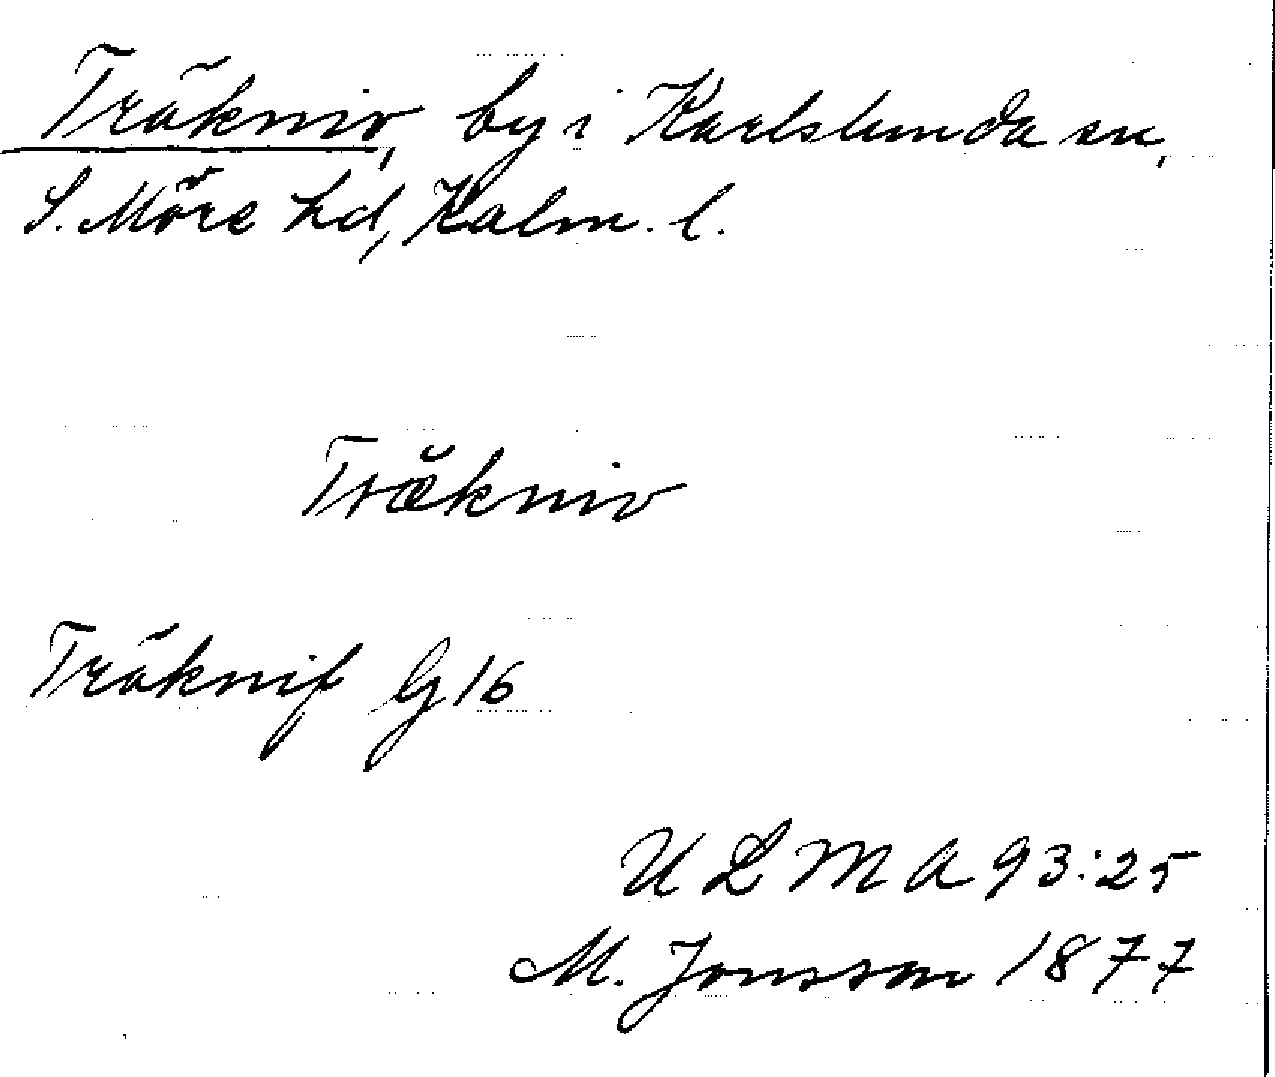 Träkniv, by i Karlslunda sn,
S. Möre hd, Kalm. l.
Träkniv
Träknif G 16
ULMA 93:25
M. Jonsson 1877